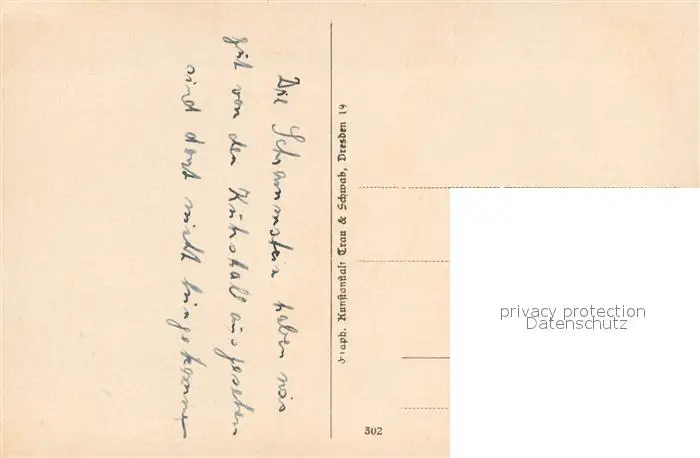 Die Schrammstein haben wir
gut von den Kuhstall aus gesehen
sind dort nicht hingekommen
Graph. Kunstanstalt Trau & Schwab, Dresden 19
302
privacy protection
Datenschutz